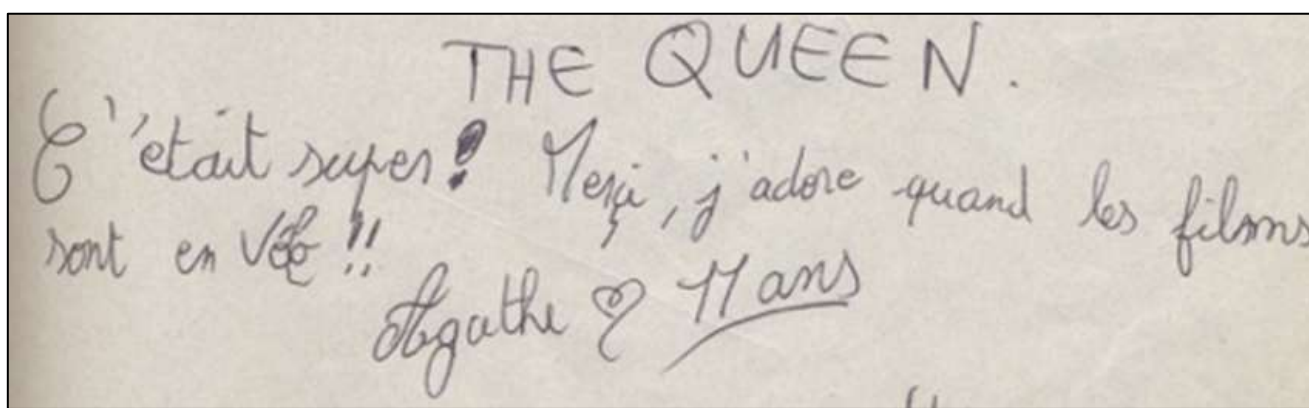 THE QUEEN.
C'était super! Merçi, j'adore quand les films
sont en !!
Agathe ♡ 11 ans